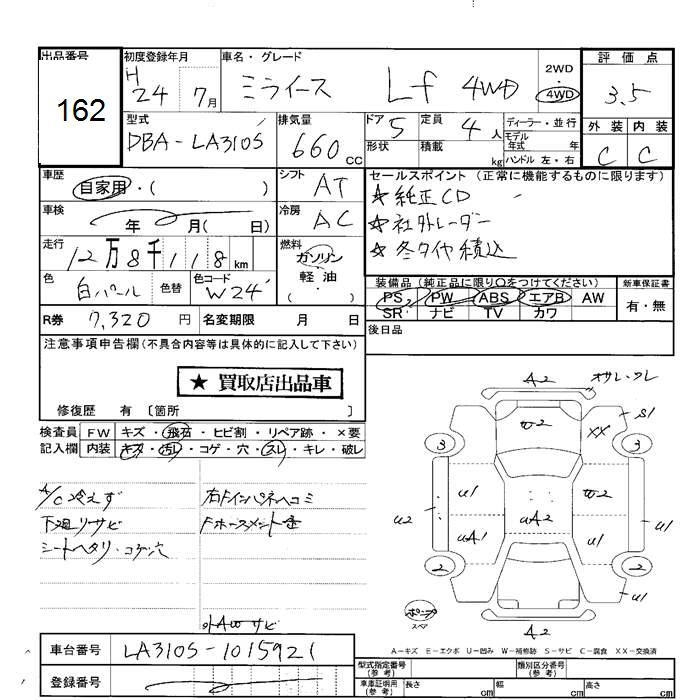 出品番号
162
初度登録年月
H
24 7月
車名・グレード
ミライース Lf 4WD
2WD
・
4WD
評価点
3.5
外装 内装
C C
型式
DBA-LA310S
排気量
660cc
ドア 5
形状
定員 4人
積載 kg
ディーラー・並行
モデル年式 年
ハンドル 左・右
車歴
自家用・( )
シフト AT
セールスポイント(正常に機能するものに限ります)
★純正CD
★社外レーダー
★冬タイヤ積込
車検
年 月( 日)
冷房 AC
走行
12万8千118km
燃料
ガソリン
軽油
( )
色
白パール
色替
色コード
W24
装備品(純正品に限り○をつけてください)
PS PW ABS エアB AW
SR ナビ TV カワ
新車保証書
有・無
R券 7,320円
名変期限 月 日
後日品
注意事項申告欄(不具合内容等は具体的に記入して下さい)
★ 買取店出品車
修復歴 有〔箇所 〕
検査員記入欄
FW キズ・飛石・ヒビ割・リペア跡・×要
内装 キズ・汚レ・コゲ・穴・スレ・キレ・破レ
A/C冷えず
下廻りサビ
シートヘタリ・コゲ穴
右Fインパネヘコミ
A2
S1
XX
3 3
U2
U1 U1
W2
U2
UA2
UA1
U1
U1
2 2
U1
スペア
A2
A－キズ E－エクボ U－凹み W－補修跡 S－サビ C－腐食 XX－交換済
車台番号 LA310S-1015921
登録番号
型式指定番号(参考)
類別区分番号(参考)
車庫証明用(参考) 長さ cm 幅 cm 高さ cm